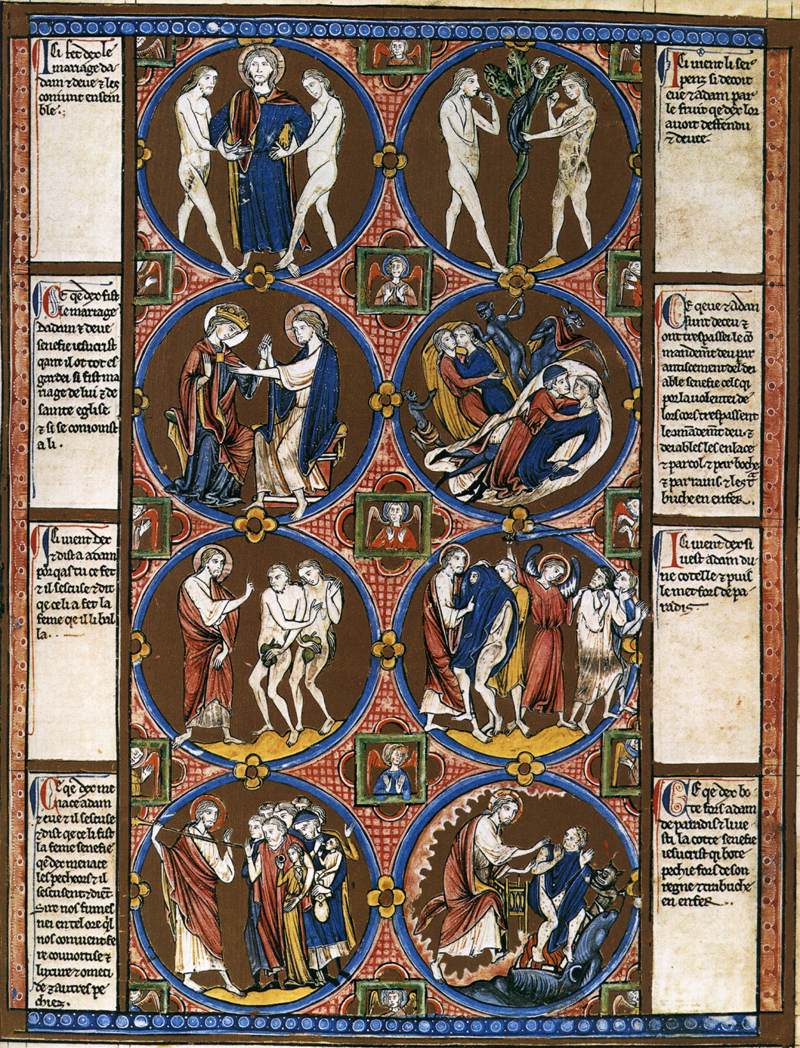 Ici fet dex le
mariage da
dam ⁊ deue ⁊ les
coniunt ensem
ble.
Ici uient li ser
penz si decoit
eue ⁊ adam par
le fruit qe dex lor
auoit deffendu
⁊ deuee.
Ce qe dex fist
le mariage
dadam ⁊ deue
senefie iesucrist
qant il ot tot es
gardei si fist ma
riage de lui ⁊ de
sainte eglise
⁊ si se conioinst
a li.
Ce qe eue ⁊ adam
furent deceu ⁊
ont trespassei le cō
mandemēt deu par
amusement del de
able senefie cels qi
por la uolentei de
lor cors trespassent
les comādemēt deu ⁊
deiables les enlace
⁊ par col ⁊ par boche
⁊ par rains ⁊ les tre
buche en enfer.
Ici uient dex
⁊ dist a adam
por qas tu ce fet
⁊ il sescuse ⁊ dit
qe ce li a fet la
feme qe il li bal
la.
Ici uient dex si
uest adam du
ne cotelle ⁊ puis
le met fors de pa
radis
Ce qe dex me
nace adam
⁊ eue ⁊ il sescuse
⁊ dist qe ce li fist
la feme senefie
qe dex menace
les pecheors ⁊ il
sescusent ⁊ diēt
Sire nos fumes
nei en tel ore qil
nos conuient fe
re couoitise ⁊
luxure ⁊ omeci
de ⁊ autres pe
chiez.
Ce qe dex bo
te fors adam
de paradis ⁊ liue
sti la cotte senefie
iesucrist qi bote
pechie fors de son
regne ⁊ trebuche
en enfer